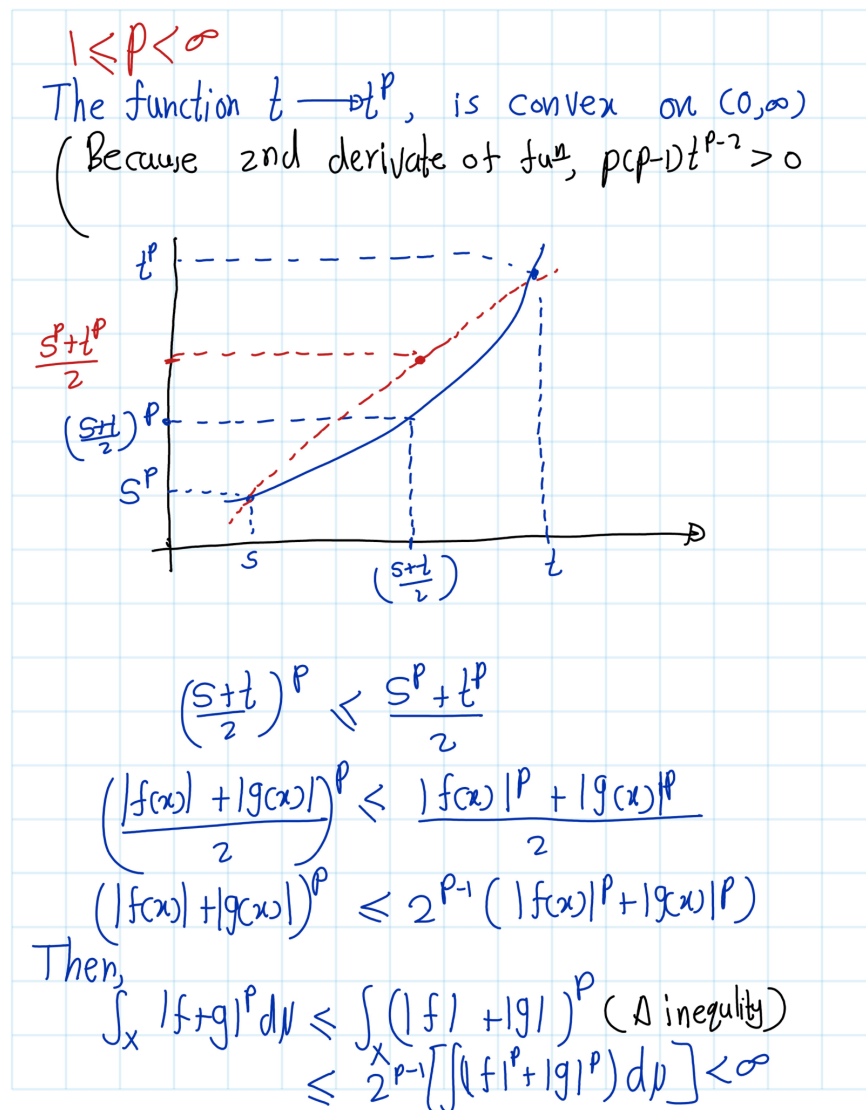 1 ≤ p < ∞
The function t → t^p, is convex on (0,∞)
(Because 2nd derivate of fuⁿ, p(p-1)t^{p-2} > 0
t^p
(s^p+t^p)/2
((s+t)/2)^p
s^p
s ((s+t)/2) t
((s+t)/2)^p ≤ (s^p + t^p)/2
((|f(x)| + |g(x)|)/2)^p ≤ (|f(x)|^p + |g(x)|^p)/2
(|f(x)| + |g(x)|)^p ≤ 2^{p-1} (|f(x)|^p + |g(x)|^p)
Then,
∫_X |f+g|^p dμ ≤ ∫_X (|f| + |g|)^p (Δ inequlity)
≤ 2^{p-1} [∫(|f|^p + |g|^p) dμ] < ∞